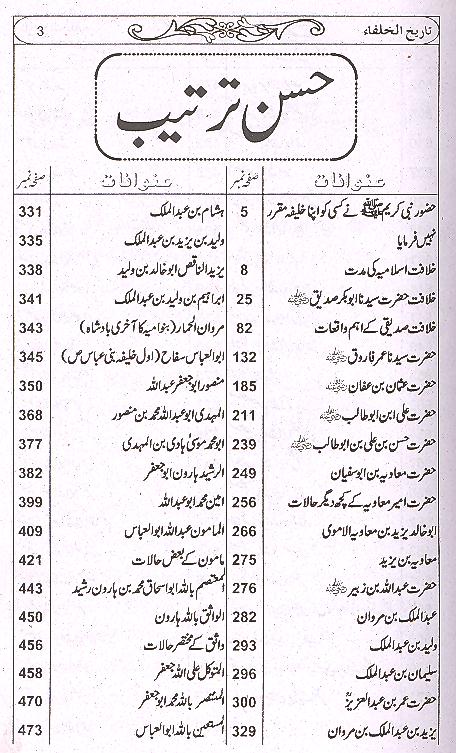 تاریخ الخلفاء 3
حسن ترتیب
عنوانات صفحہ نمبر
حضور نبی کریم ﷺ نے کسی کو اپنا خلیفہ مقرر 5
نہیں فرمایا
خلافت اسلامیہ کی مدت 8
خلافت حضرت سیدنا ابوبکر صدیق رضی اللہ عنہ 25
خلافت صدیقی کے اہم واقعات 82
حضرت سیدنا عمر فاروق رضی اللہ عنہ 132
حضرت عثمان بن عفان رضی اللہ عنہ 185
حضرت علی ابن ابوطالب رضی اللہ عنہ 211
حضرت حسن بن علی بن ابوطالب رضی اللہ عنہ 239
حضرت معاویہ بن ابوسفیان 249
حضرت امیر معاویہ کے کچھ دیگر حالات 256
ابوخالد یزید بن معاویہ الاموی 266
معاویہ بن یزید 275
حضرت عبداللہ بن زبیر رضی اللہ عنہ 276
عبدالملک بن مروان 282
ولید بن عبدالملک 293
سلیمان بن عبدالملک 296
حضرت عمر بن عبدالعزیزؒ 300
یزید بن عبدالملک بن مروان 329
عنوانات صفحہ نمبر
ہشام بن عبدالملک 331
ولید بن یزید بن عبدالملک 335
یزید الناقص ابوخالد بن ولید 338
ابراہیم بن ولید بن عبدالملک 341
مروان الحمار (بنوامیہ کا آخری بادشاہ) 343
ابوالعباس سفاح (اول خلیفہ بنی عباس ص) 345
منصور ابوجعفر عبداللہ 350
المہدی ابوعبداللہ محمد بن منصور 368
ابومحمد موسیٰ ہادی بن المہدی 377
الرشید ہارون ابوجعفر 382
امین محمد ابوعبداللہ 399
المامون عبداللہ ابوالعباس 409
مامون کے بعض حالات 421
المعتصم باللہ ابواسحاق محمد بن ہارون رشید 443
الواثق باللہ ہارون 450
واثق کے مختصر حالات 456
المتوکل علی اللہ جعفر 458
المنتصر باللہ محمد ابوجعفر 470
المستعین باللہ ابوالعباس 473